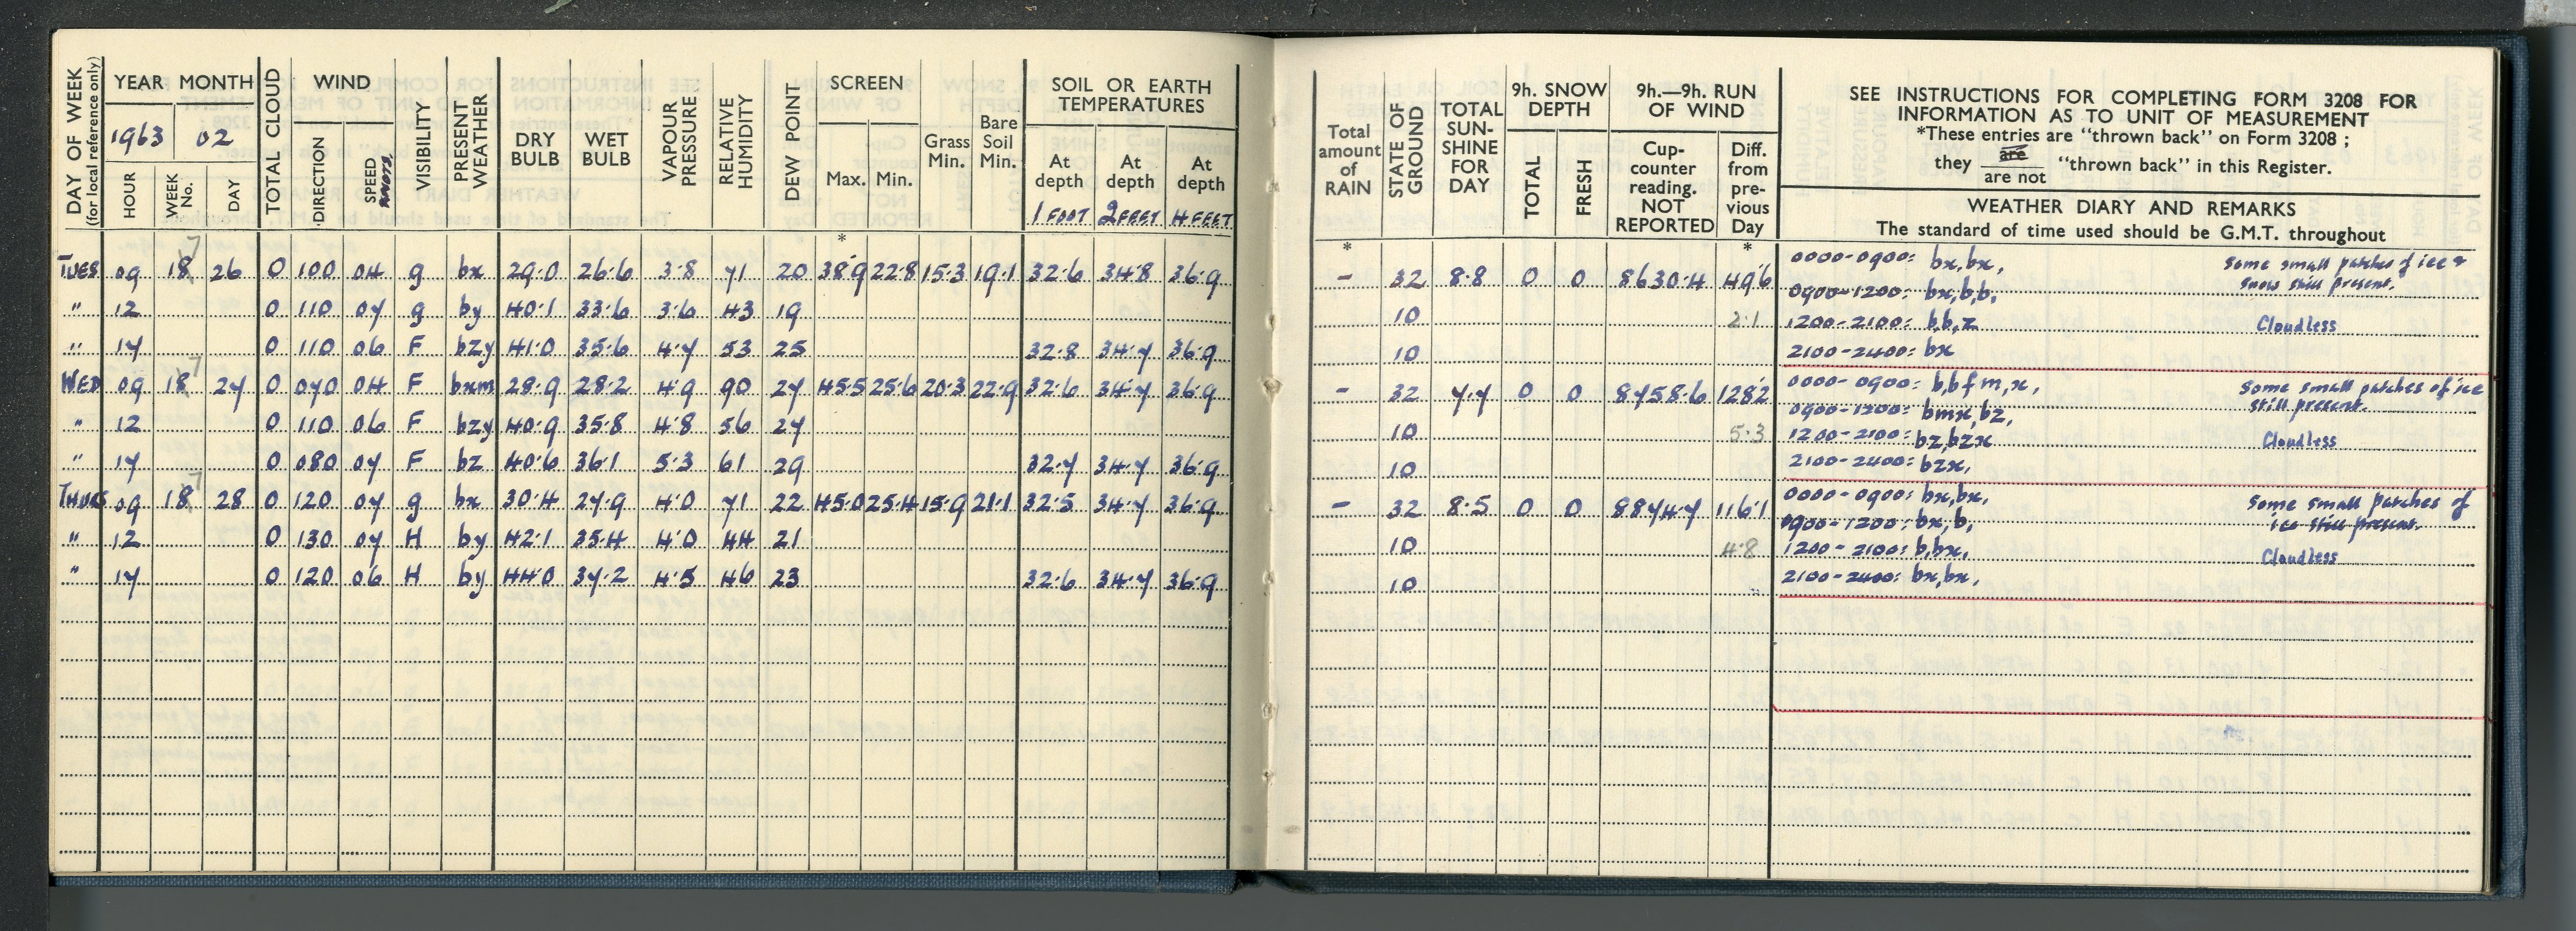 DAY OF WEEK
(for local reference only)
YEAR MONTH
1963 02
HOUR
WEEK No.
DAY
TOTAL CLOUD
WIND
DIRECTION
SPEED
KNOTS
VISIBILITY
PRESENT WEATHER
DRY BULB
WET BULB
VAPOUR PRESSURE
RELATIVE HUMIDITY
DEW POINT
SCREEN
Max. Min.
Grass Min.
Bare Soil Min.
SOIL OR EARTH
TEMPERATURES
At depth At depth At depth
1 FOOT 2 FEET 4 FEET
*
TUES 09 18 7 26 0 100 04 g bx 29.0 26.6 3.8 71 20 38.9 22.8 15.3 19.1 32.6 34.8 36.9
" 12 0 110 07 g by 40.1 33.6 3.6 43 19
" 17 0 110 06 F bzy 41.0 35.6 4.7 53 25 32.8 34.7 36.9
WED 09 18 7 27 0 070 04 F bxm 28.9 28.2 4.9 90 27 45.5 25.6 20.3 22.9 32.6 34.7 36.9
" 12 0 110 06 F bzy 40.9 35.8 4.8 56 27
" 17 0 080 07 F bz 40.6 36.1 5.3 61 29 32.7 34.7 36.9
THURS 09 18 7 28 0 120 07 g bx 30.4 27.9 4.0 71 22 45.0 25.4 15.9 21.1 32.5 34.7 36.9
" 12 0 130 07 H by 42.1 35.4 4.0 44 21
" 17 0 120 06 H by 44.0 37.2 4.5 46 23 32.6 34.7 36.9
Total amount of RAIN
STATE OF GROUND
TOTAL SUN-SHINE FOR DAY
9h. SNOW DEPTH
TOTAL
FRESH
9h.—9h. RUN OF WIND
Cup-counter reading. NOT REPORTED
Diff. from pre-vious Day
SEE INSTRUCTIONS FOR COMPLETING FORM 3208 FOR
INFORMATION AS TO UNIT OF MEASUREMENT
*These entries are "thrown back" on Form 3208 ;
they are / are not "thrown back" in this Register.
WEATHER DIARY AND REMARKS
The standard of time used should be G.M.T. throughout
* *
- 32 8.8 0 0 8630.4 49.6
0000-0900: bx,bx, Some small patches of ice &
0900-1200: bx,b,b, snow still present.
10 2.1 1200-2100: b,b,z Cloudless
10 2100-2400: bx
- 32 7.7 0 0 8758.6 128.2
0000-0900: b,bfm,x, Some small patches of ice
0900-1200: bmx,bz, still present.
10 5.3 1200-2100: bz,bzx Cloudless
10 2100-2400: bzx,
- 32 8.5 0 0 8874.7 116.1
0000-0900: bx,bx, Some small patches of
0900-1200: bx,b, ice still present.
10 4.8 1200-2100: b,bx, Cloudless
10 2100-2400: bx,bx,